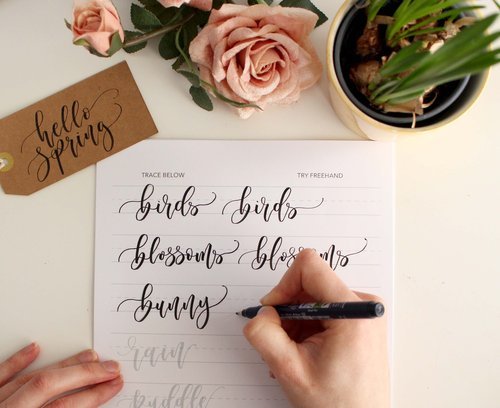 hello
spring
TRACE BELOW TRY FREEHAND
birds birds
blossoms blossoms
bunny
rain
puddle